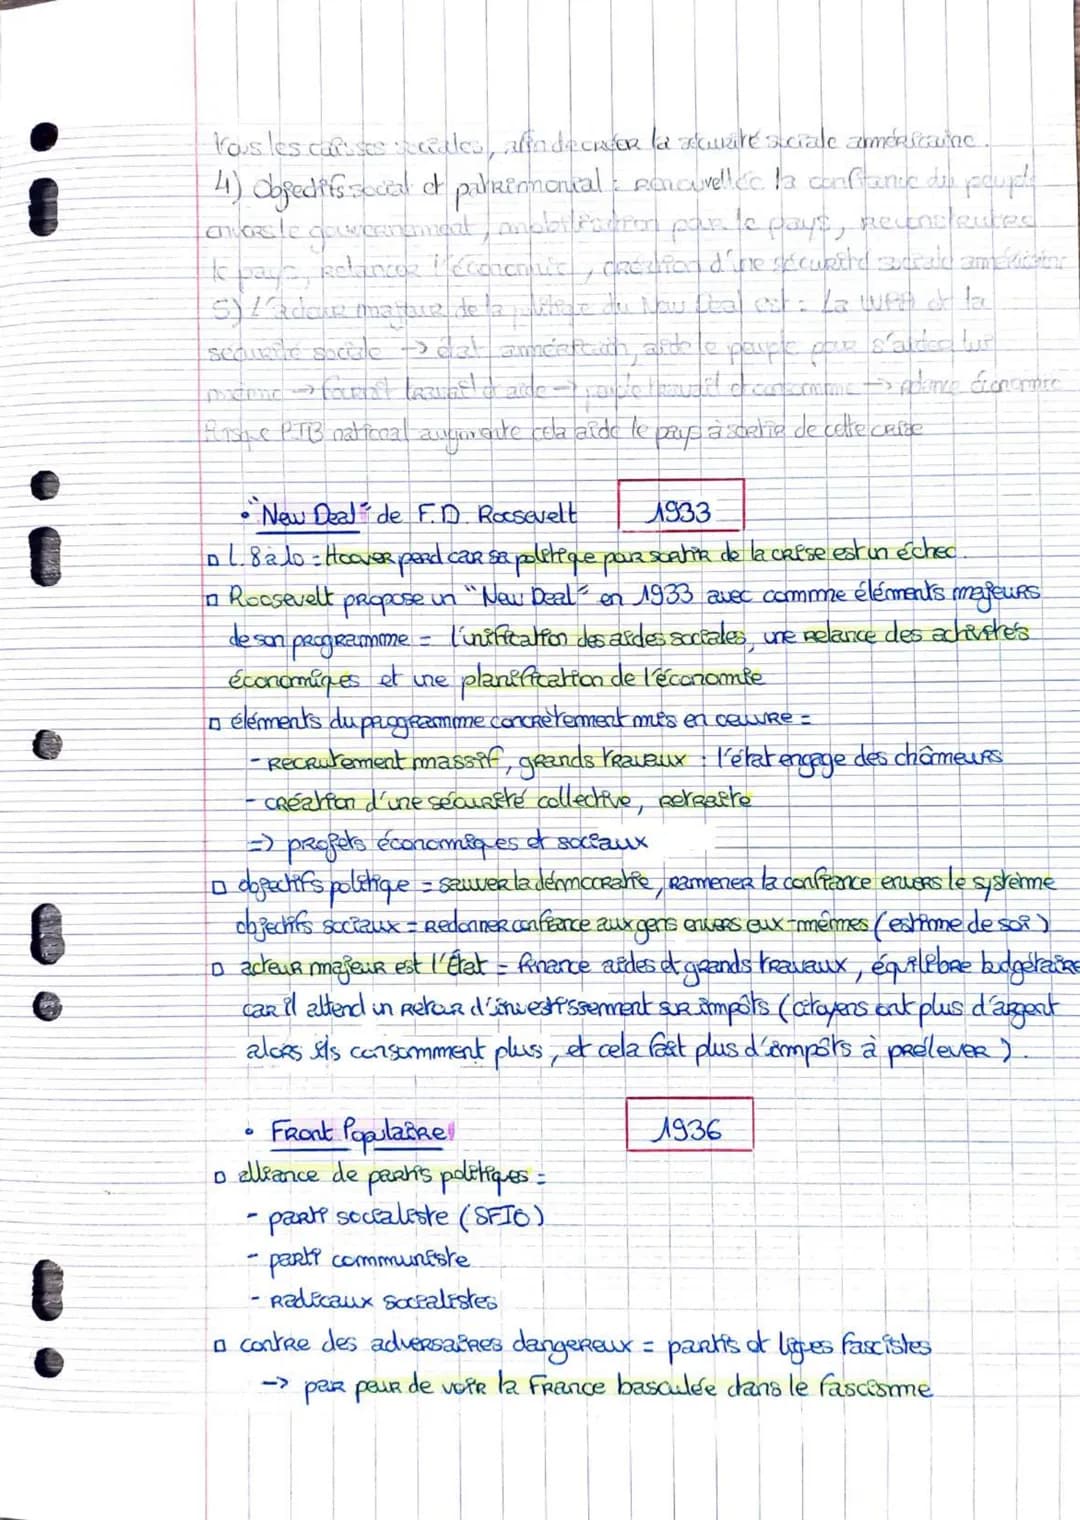 tous les caisses sociales, afin de créer la sécurité sociale américaine.
4) Objectifs social et patrimonial : renouvellée la confiance du peuple
envers le gouvernement, mobilisation par le pays,
le pays, relancer l'économie, création d'une sécurité sociale américaine
5) L'acteur majeur de la politique du New Deal est : La WPA et la
sécurité sociale → état américain, aide le peuple pour s'aider lui
même → fournit travail et aide → travail et consomme → relance économie
Puisque PIB national augmente cela aide le pays à sortir de cette crise
• "New Deal" de F.D. Roosevelt 1933
□ l. 8 à 10 = Hoover perd car sa politique pour sortir de la crise est un échec.
□ Roosevelt propose un "New Deal" en 1933 avec comme éléments majeurs
de son programme = l'unification des aides sociales, une relance des activités
économiques et une planification de l'économie
□ éléments du programme concrètement mis en oeuvre =
- recrutement massif, grands travaux : l'état engage des chômeurs
- création d'une sécurité collective, retraite
=> projets économiques et sociaux
□ objectifs politique = sauver la démocratie, ramener la confiance envers le système
objectifs sociaux = redonner confiance aux gens envers eux-mêmes (estime de soi)
□ acteur majeur est l'État = finance aides et grands travaux, équilibre budgétaire
car il attend un retour d'investissement sur impôts (citoyens ont plus d'argent
alors ils consomment plus, et cela fait plus d'impôts à prélever).
• Front Populaire 1936
□ alliance de partis politiques =
- parti socialiste (SFIO)
- parti communiste
- Radicaux socialistes
□ contre des adversaires dangereux = partis et ligues fascistes
-> par peur de voir la France basculée dans le fascisme